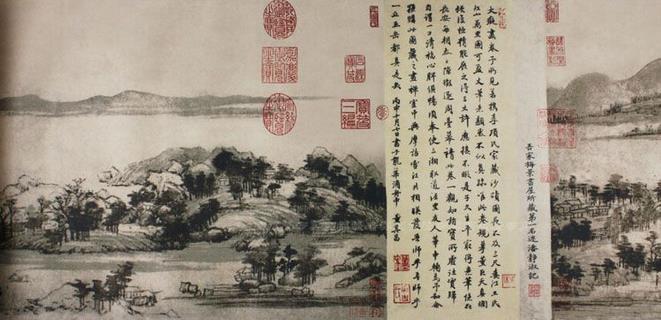 吾家梅景書屋所藏第一名迹潘靜淑記
大癡畫卷予所見若檇李項氏家藏沙磧圖長不及三尺婁江王氏
江山萬里圖可盈丈筆意頹然不似真跡唯此卷規摹董巨天真爛
漫復極精能展之得三丈許應接不暇是子久生平最得意筆憶在
長安每朝參之隙徵逐周臺幕請此卷一觀如詣寶所虛往實歸
自謂一日清福心脾俱暢頃奉使三湘取道涇里友人華中翰為予和會
獲購此圖藏之畫禪室中與摩詰雪江共相映發吾師乎吾師乎
一丘五岳都具是矣 丙申十月七日書于龍華浦舟中 董其昌